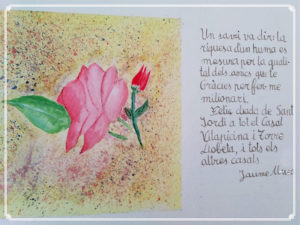 Un savi va dir: la
riquesa d'un humà es
mesura per la quali-
tat dels amics que te
Gràcies per fer-me
milionari.
Feliç diada de Sant
Jordi a tot el Casal
Vilapicina i Torre
Llobeta, i tots els
altres casals
Jaume